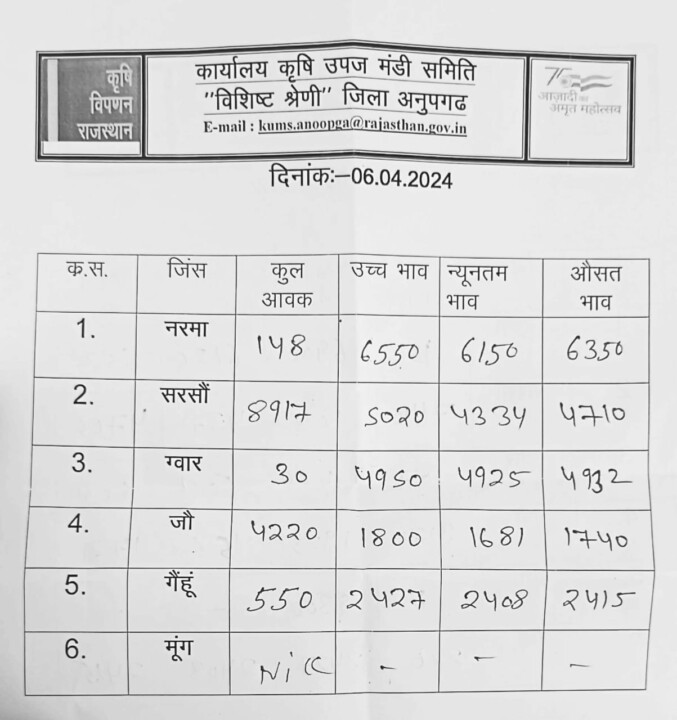 कृषि
विपणन
राजस्थान
कार्यालय कृषि उपज मंडी समिति
"विशिष्ट श्रेणी" जिला अनुपगढ
E-mail : kums.anoopga@rajasthan.gov.in
75
आज़ादी का
अमृत महोत्सव
दिनांकः–06.04.2024
क.स. जिंस कुल आवक उच्च भाव न्यूनतम भाव औसत भाव
1. नरमा 148 6550 6150 6350
2. सरसौं 8917 5020 4334 4710
3. ग्वार 30 4950 4925 4932
4. जौ 4220 1800 1681 1740
5. गैंहूं 550 2427 2408 2415
6. मूंग Nill - - -